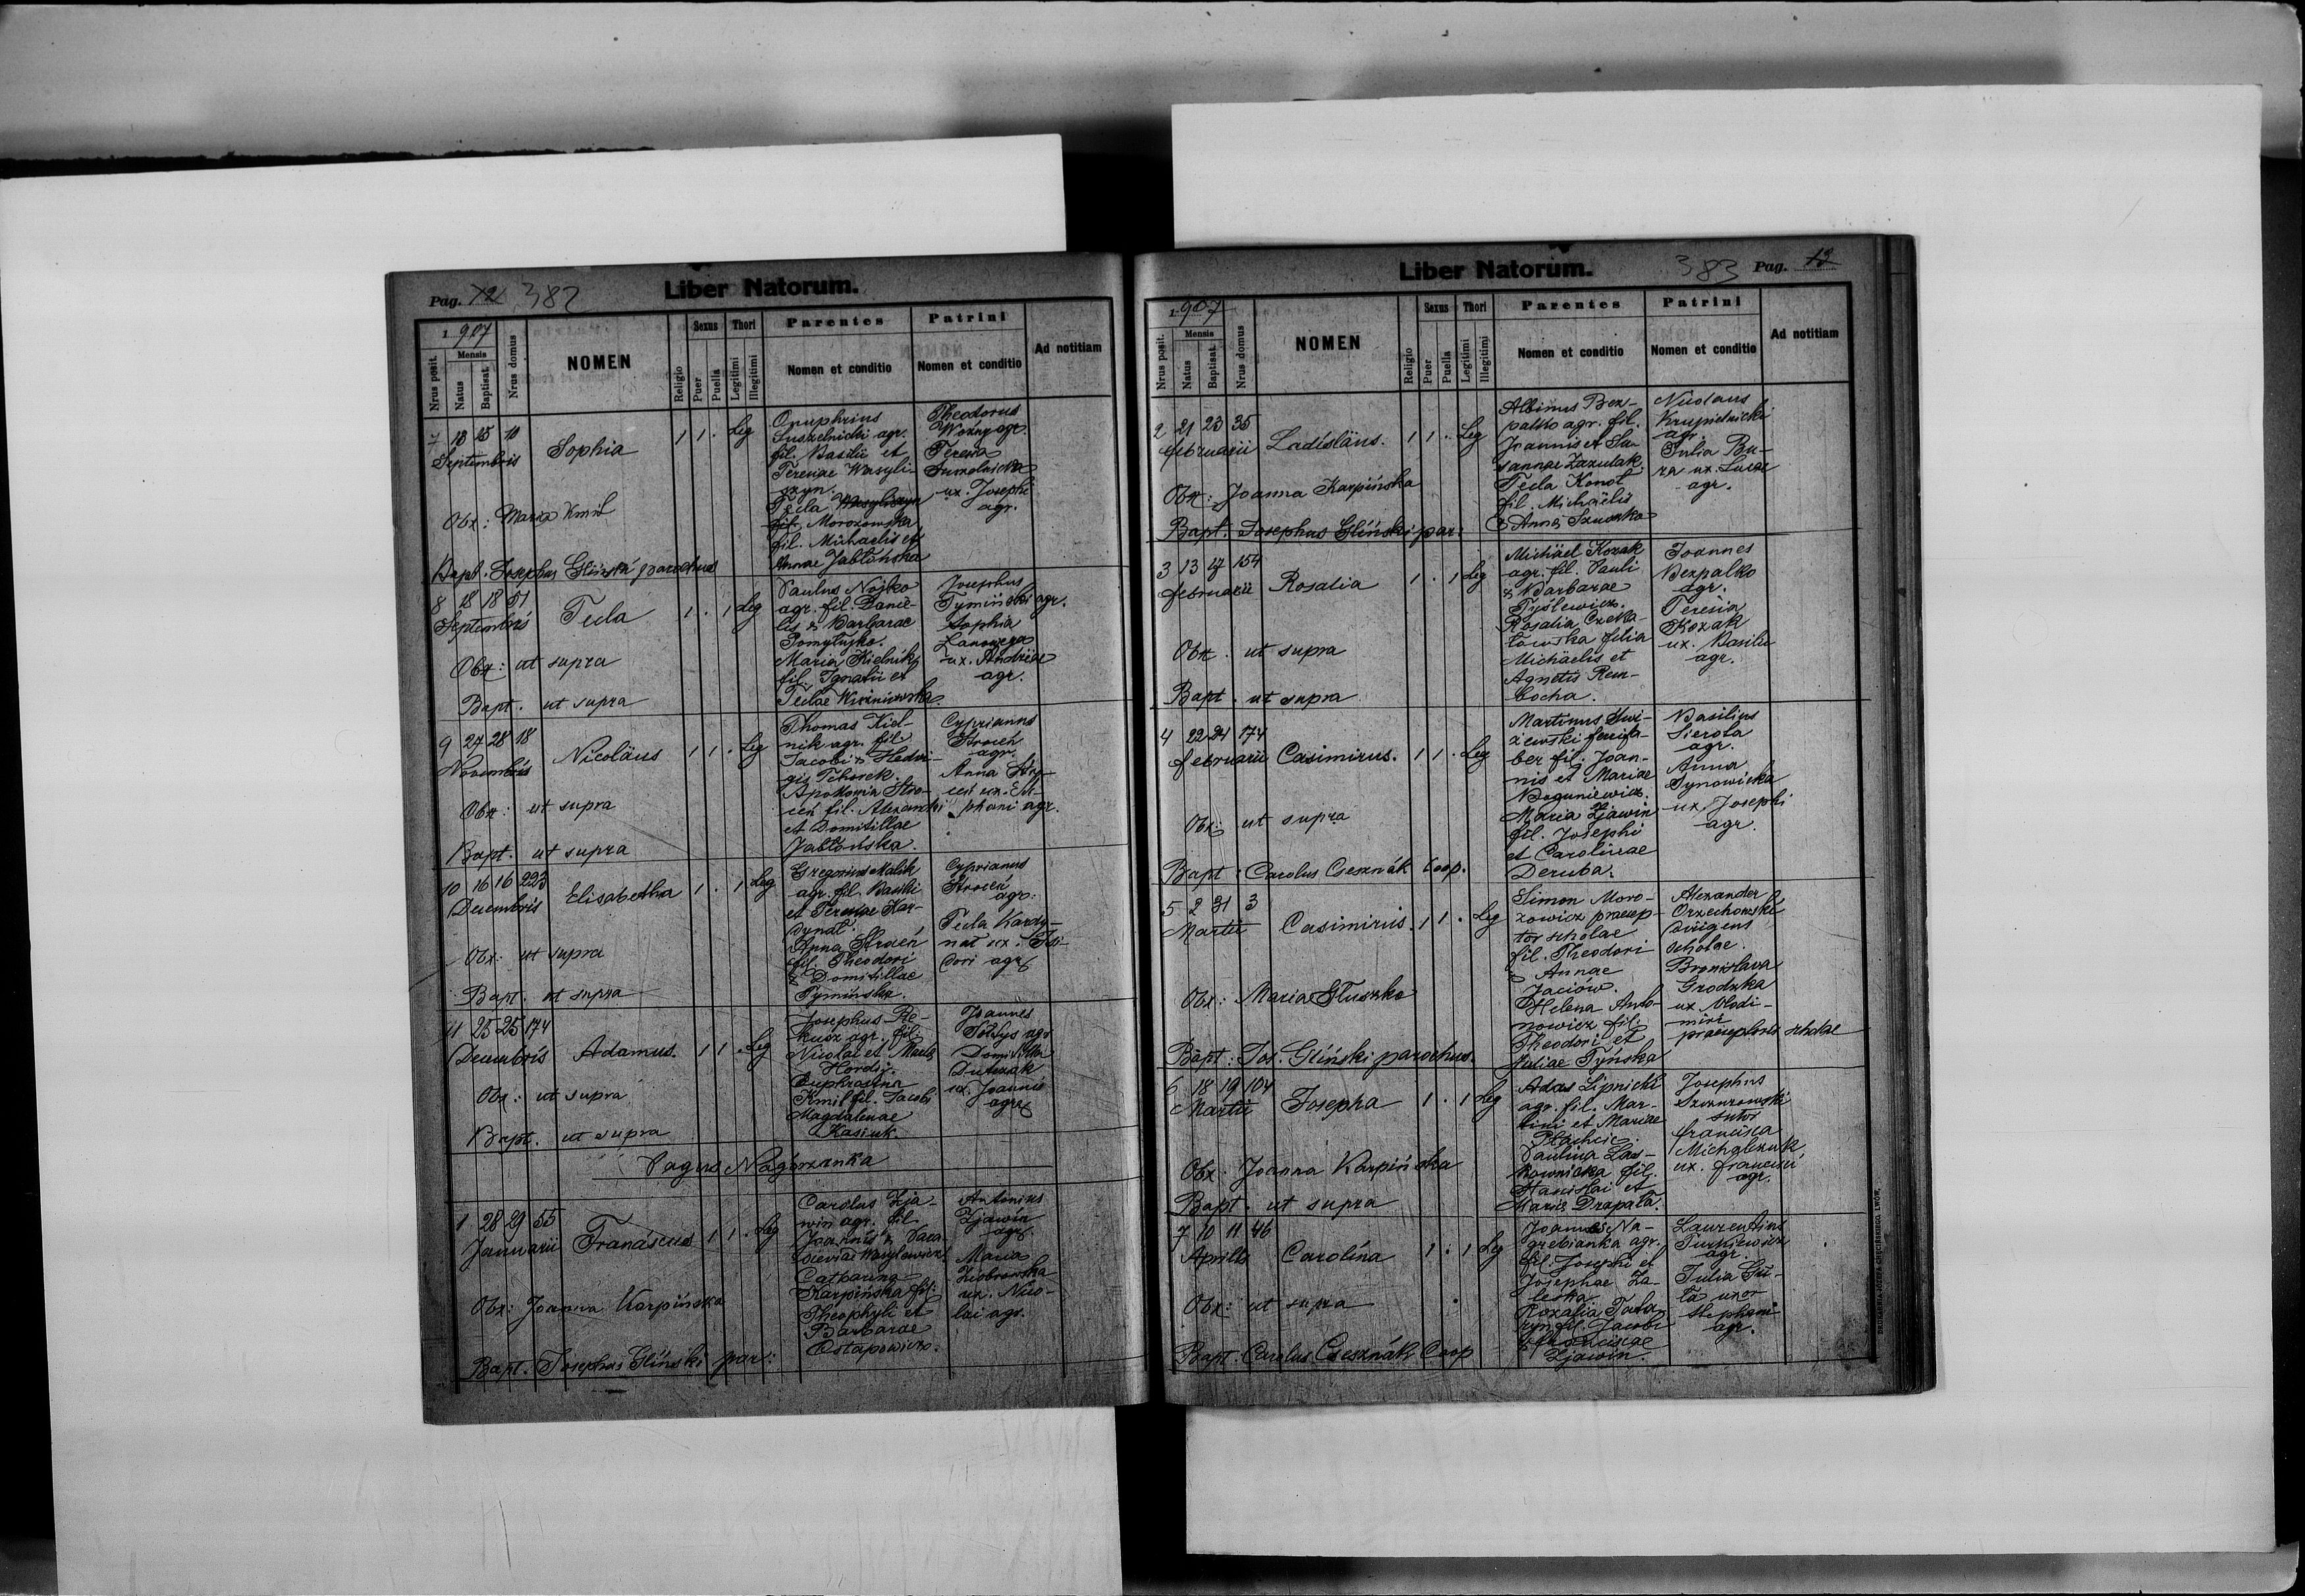 Pag. 12 382
Liber Natorum.
1907
Nrus posit.
Mensis
Natus
Baptisat.
Nrus domus
NOMEN
Religio
Sexus
Puer
Puella
Thori
Legitimi
Illegitimi
Parentes
Nomen et conditio
Patrini
Nomen et conditio
Ad notitiam
7 18 25 10
Septembris
Sophia
1 1 . Leg
Onuphrius
Suszelnicki agr.
fil. Basilii et
Teresiae Wasyli-
szyn.
Tecla Wasyliszyn
fil. Morozowska
fil. Michaelis et
Annae Jabłońska
Theodorus
Woźny agr.
Teresia
Suszelnicka
ux. Josephi
agr.
Obx: Maria Kmil
Bapt. Josephus Gliński parochus
8 18 18 51
Septembris
Tecla
1 . 1 Leg
Paulus Nojko
agr. fil. Danie-
lis & Barbarae
Pomytujko.
Maria Kielnik
fil. Ignatii et
Teclae Wiśniowska
Josephus
Tymiński agr.
Sophia
ux. Andreae
agr.
Obx: ut supra
Bapt. ut supra
9 27 28 18
Novembris
Nicoläus
1 1 . Leg
Thomas Kiel-
nik agr. fil.
Jacobi & Hedvi-
gis Tchorek.
Apolonia Stro-
ceń fil. Alexandri
et Domitillae
Jabłońska.
Cyprianus
Stroceń
agr.
Anna Stro-
ceń ux. Ste-
phani agr.
Obx: ut supra
Bapt. ut supra
10 16 16 223
Decembris
Elisabetha
1 . 1 Leg
Gregorius Malik
agr. fil. Basilii
et Teresiae Kar-
dynał.
Anna Stroceń
fil. Theodori
& Domitillae
Tymińska.
Cyprianus
Stroceń
agr.
Tecla Kardy-
nał ux. Isi-
dori agr.
Obx: ut supra
Bapt. ut supra
11 25 25 174
Decembris
Adamus.
1 1 . Leg
Josephus Re-
kusz agr. fil.
Nicolai et
Hordij.
Euphrosina
Kmil fil. Jacobi
Magdalenae
Kasiuk.
Joannes
Sołtys agr.
Domitilla
ux. Joannis
agr.
Obx: ut supra
Bapt. ut supra
Pagus Nagórzanka
1 28 29 55
Januarii
Franciscus
1 1 . Leg
Carolus Zja-
win agr. fil.
Joannis &
Wasylewicz
Catharina
Karpińska fil.
Theophyli et
Barbarae
Ostapowicz.
Antonius
Zjawin
agr.
Maria
Ziobrowska
ux. Nico-
lai agr.
Obx: Joanna Karpińska
Bapt. Josephus Gliński par:
Liber Natorum.
383 Pag. 12
1907
Nrus posit.
Mensis
Natus
Baptisat.
Nrus domus
NOMEN
Religio
Sexus
Puer
Puella
Thori
Legitimi
Illegitimi
Parentes
Nomen et conditio
Patrini
Nomen et conditio
Ad notitiam
2 21 23 35
februarii
Ladisläus.
1 1 . Leg
Albinus Bez-
palko agr. fil.
Joannis et Su-
sannae Zazulak.
Tecla Konot
fil. Michaëlis
& Annae Szuszko
Nicolaus
Krupielnicki
agr.
Julia Bu-
ra ux. Lucae
agr.
Obx: Joanna Karpińska
Bapt. Josephus Gliński par:
3 13 17 154
februarii
Rosalia
1 . 1 Leg
Michäel Kozak
agr. fil. Pauli
& Barbarae
Tyślewicz.
Rosalia Czeka-
łowska filia
Michäelis et
Agnetis Rem-
bocha.
Joannes
Bezpalko
agr.
Teresia
Kozak
ux. Basilii
agr.
Obx. ut supra
Bapt. ut supra
4 22 24 174
februarii
Casimirus.
1 1 . Leg
Martinus
ziewski ferrifa-
ber fil. Joan-
nis et Mariae
Boguniewicz.
Maria Zjawin
fil. Josephi
et Carolinae
Deruba.
Basilius
Sierota
agr.
Anna
Synowicka
ux. Josephi
agr.
Obx: ut supra
Bapt: Carolus Csesznák Coop.
5 2 31 3
Martii
Casimirus.
1 1 . Leg
Simon Moro-
zowicz praecep-
tor scholae
fil. Theodori
& Annae
Jaciów.
Helena Anto-
nowicz fil.
Theodori et
Juliae Tyńska
Alexander
Orzechowski
dirigens
scholae.
Bronislava
Grodzka
ux. Vlodi-
miri
praeceptoris scholae
Obx: Maria Słuszko
Bapt: Jos. Gliński parochus.
6 18 19 104
Martii
Josepha
1 . 1 Leg
Adas Lipnicki
agr. fil. Mar-
tini et Mariae
Płachcic.
Paulina Law-
rownicka fil.
Stanislai et
Mariae Drapała.
Josephus
Szwarzowski
sutor
francisca
Michalczuk
ux. francisci
agr.
Obx: Joanna Karpińska
Bapt. ut supra
7 10 11 46
Aprilis
Carolina
1 . 1 Leg
Joannes Na-
grebianka agr.
fil. Josephi et
Josephae Za-
leska.
Rozalia Tata-
ryn fil. Jacobi
& franciscae
Zjawin.
Laurentius
Turkiewicz
agr.
Julia Gu-
ła uxor
Stephani
agr.
Obx: ut supra
Bapt. Carolus Csesznák Coop